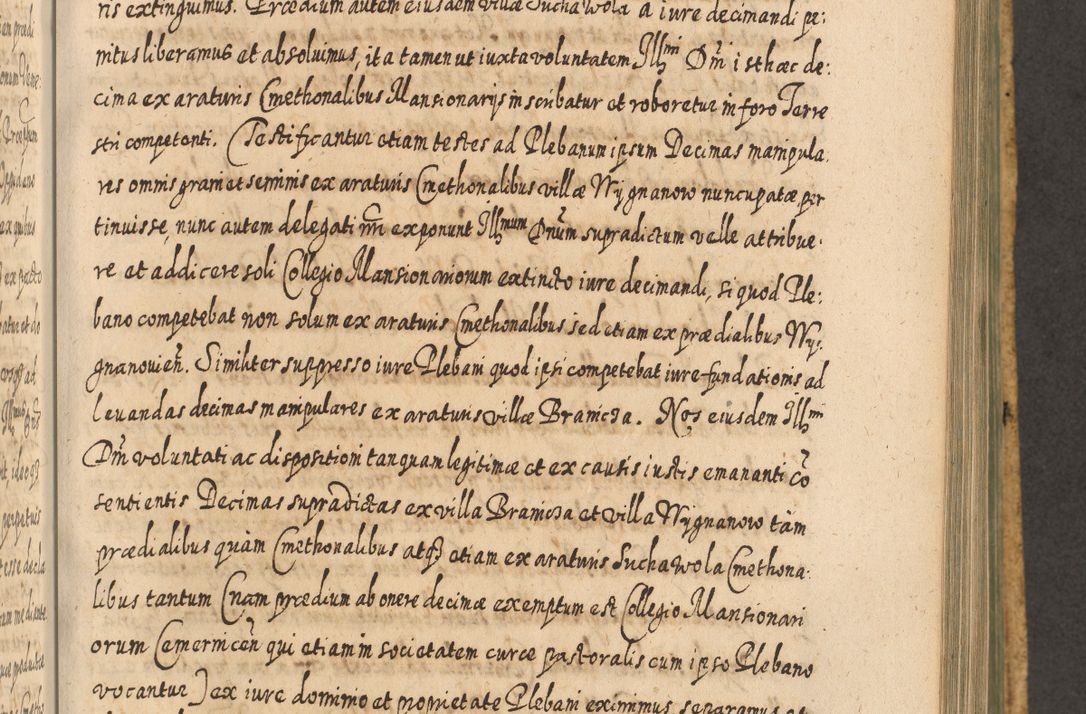 ris extinguimus. Prædium autem eiusdem villæ Suchawola a iure decimandi pe:
nitus liberamus et absoluimus, ita tamen ut iuxta voluntatem Ill^mi Dm̃ isthæc de:
cima ex araturis Cmethonalibus Mansionarijs inscribatur et roboretur in foro Terre
stri competenti. (Testificantur etiam testes ad Plebanum ipsum Decimas manipula
res omnis grani et seminis ex araturis Cmethonalibus villæ Wygnanow nuncupatæ per
tinuisse, nunc autem delegati nri exponunt Ill^mum Dnum supradictum velle attribue:
re et addicere soli Collegio Mansionariorum extincto iure decimandi, si quod Ple:
bano competebat non solum ex araturis Cmethonalibus sed etiam ex prædialibus Wy:
gnanovien̄. Similiter suppresso iure Plebani quod ipsi competebat iure fundationis ad
levandas decimas manipulares ex araturis villæ Branicza. Nos eiusdem Ill^mi
Dm̃ voluntati ac dispositioni tanquam legitimæ et ex causis iustis emananti cō
sentientis Decimas supradictas ex villa Branicza et villa Wygnanow tàm
prædialibus quàm Cmethonalibus atq3 etiam ex araturis Suchawola Cmethona:
libus tantum (nam prædium ab onere decimæ exemptum est Collegio Mansionari
orum Cemernicen̄ qui etiam in societatem curæ pastoralis cum ipso Plebano
vocantur) ex iure dominio et proprietate Plebani eximimus separamus et